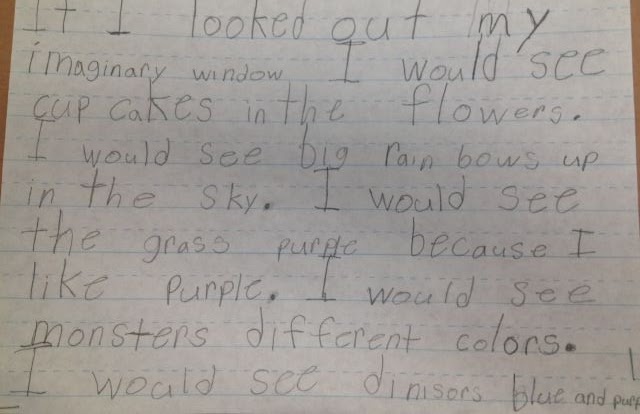 If I looked out my
imaginary window I would see
cup cakes in the flowers.
I would see big rain bows up
in the sky. I would see
the grass purple because I
like purple. I would see
monsters different colors.
I would see dinisors blue and purp